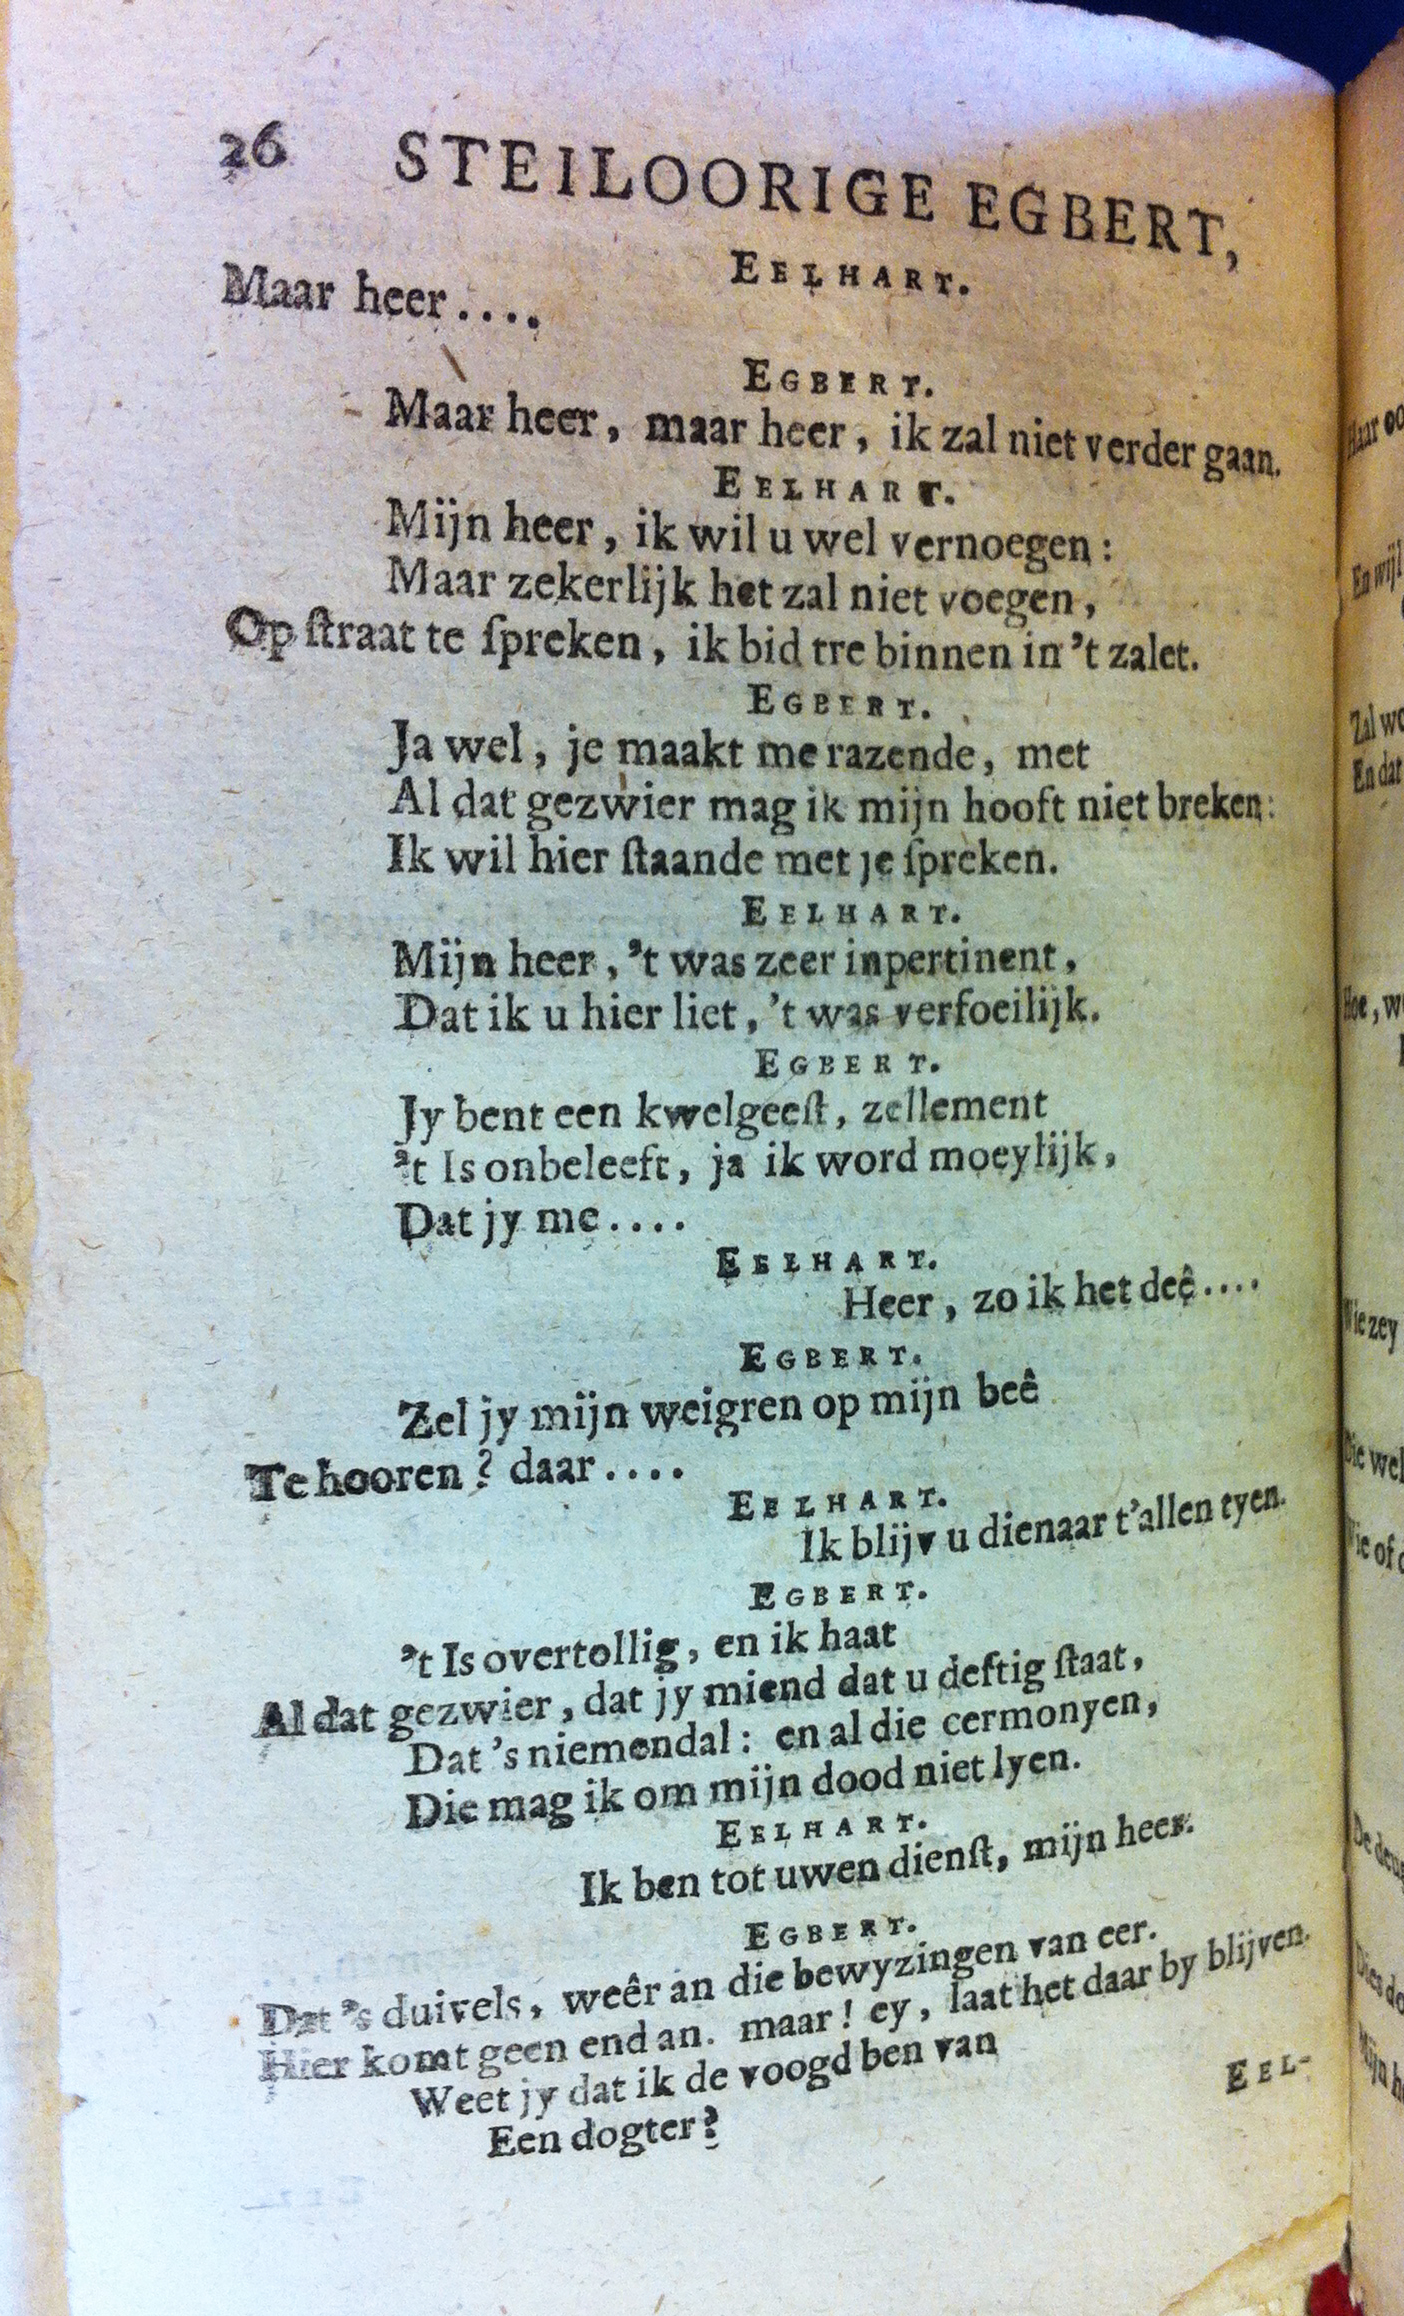 26 STEILOORIGE EGBERT,
EELHART.
Maar heer....
EGBERT.
Maar heer, maar heer, ik zal niet verder gaan.
EELHART.
Mijn heer, ik wil u wel vernoegen:
Maar zekerlijk het zal niet voegen,
Op ſtraat te ſpreken, ik bid tre binnen in 't zalet.
EGBERT.
Ja wel, je maakt me razende, met
Al dat gezwier mag ik mijn hooft niet breken:
Ik wil hier ſtaande met je ſpreken.
EELHART.
Mijn heer, 't was zeer inpertinent,
Dat ik u hier liet, 't was verfoeilijk.
EGBERT.
Jy bent een kwelgeeſt, zellement
't Is onbeleeft, ja ik word moeylijk,
Dat jy me....
EELHART.
Heer, zo ik het deê....
EGBERT.
Zel jy mijn weigren op mijn beê
Te hooren? daar....
EELHART.
Ik blijv u dienaar t'allen tyen.
EGBERT.
't Is overtollig, en ik haat
Al dat gezwier, dat jy miend dat u deftig ſtaat,
Dat 's niemendal: en al die cermonyen,
Die mag ik om mijn dood niet lyen.
EELHART.
Ik ben tot uwen dienſt, mijn heer.
EGBERT.
Dat 's duivels, weêr an die bewyzingen van eer.
Hier komt geen end an. maar! ey, laat het daar by blijven.
Weet jy dat ik de voogd ben van
Een dogter?
EEL-
Haar
En wijl
Zal
En dat
Hoe,
zey
Die wel
of
De
Mijn